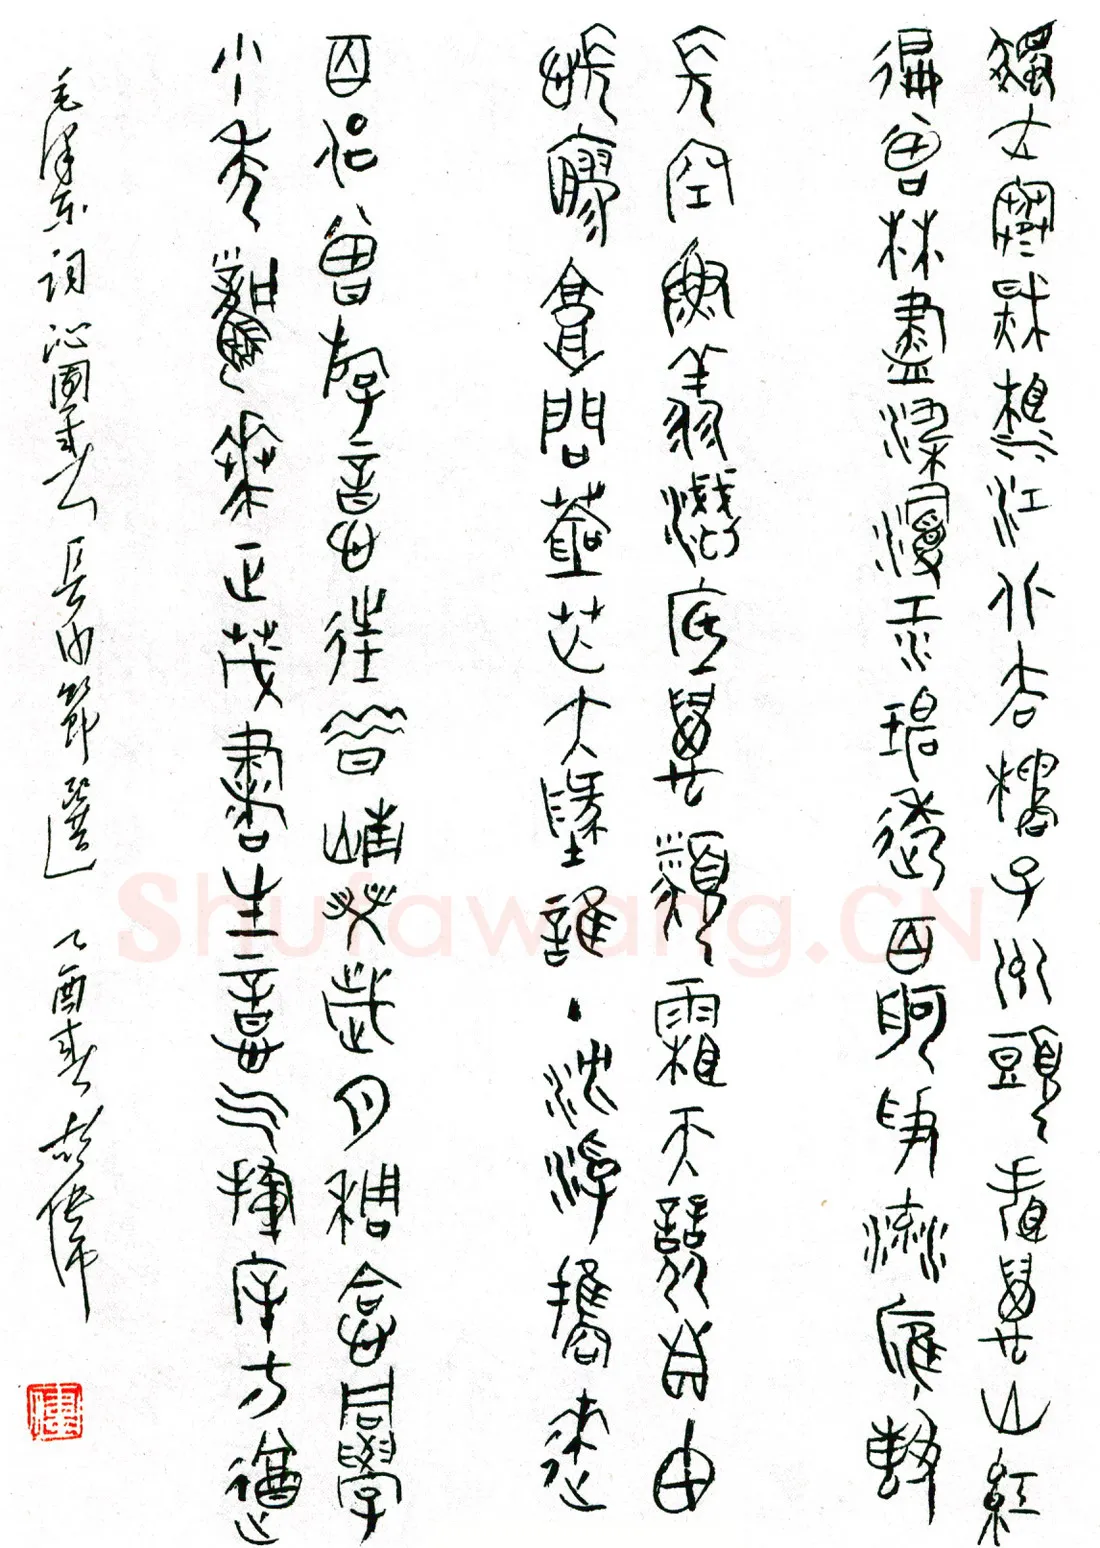 獨立寒秋湘江北去橘子洲頭看萬山紅
徧層林盡染漫江碧透百舸爭流鷹擊
長空魚翔淺底萬類霜天競自由
悵寥廓問蒼茫大地誰主沈浮攜來
百侶曾游憶往昔崢嶸歲月稠恰同學
少年風華正茂書生意氣揮斥方遒
毛澤東詞沁園春長沙節選 乙酉春彭偉
Shufawang.CN